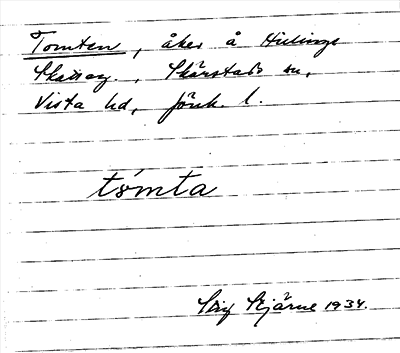 Tomten, åker å Hullings
Skattag., Skärstads sn,
Vista hd, Jönk. l.
tómta
Stig Stjärne 1934.